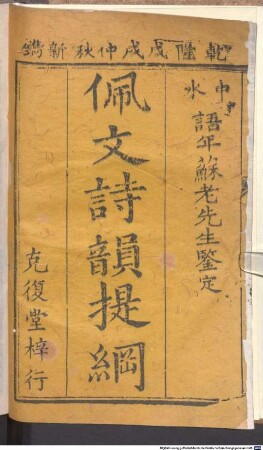 乾隆戊戌仲秋新鐫
中水
語年蘇老先生鑒定
佩文詩韻提綱
克復堂梓行